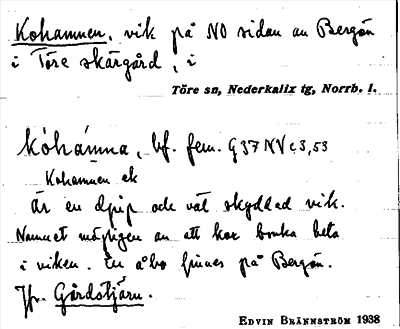 Kohamnen, vik på NO sidan av Bergön
i Töre skärgård, i
Töre sn, Nederkalix tg, Norrb. l.
kohamna, bf. fem. G 37 NV c 3, 53
Kohamnen ek
är en djup och väl skyddad vik.
Namnet möjligen av att kor bruka beta
i viken. En åbo finnes på Bergön.
Jfr. Gårdstjärn.
EDVIN BRÄNNSTRÖM 1938